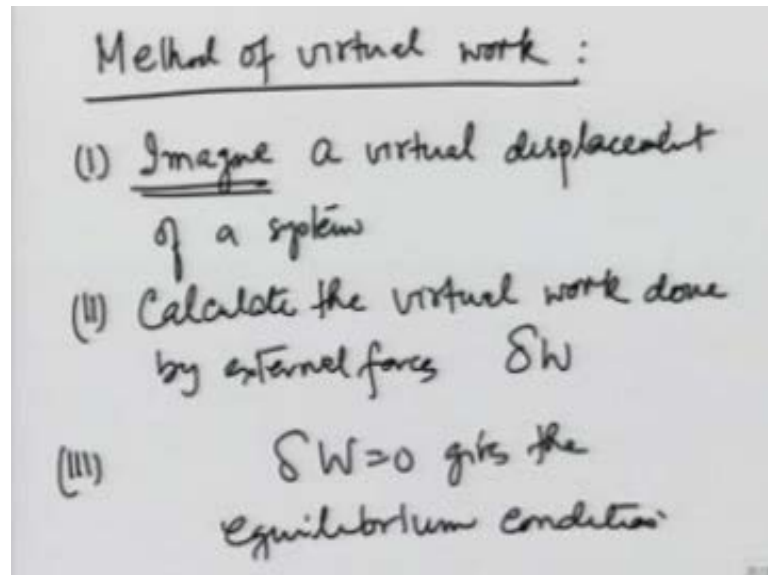 Method of virtual work :
(I) Imagine a virtual displacement
of a system
(II) Calculate the virtual work done
by external forces δW
(III) δW=0 gives the
equilibrium condition